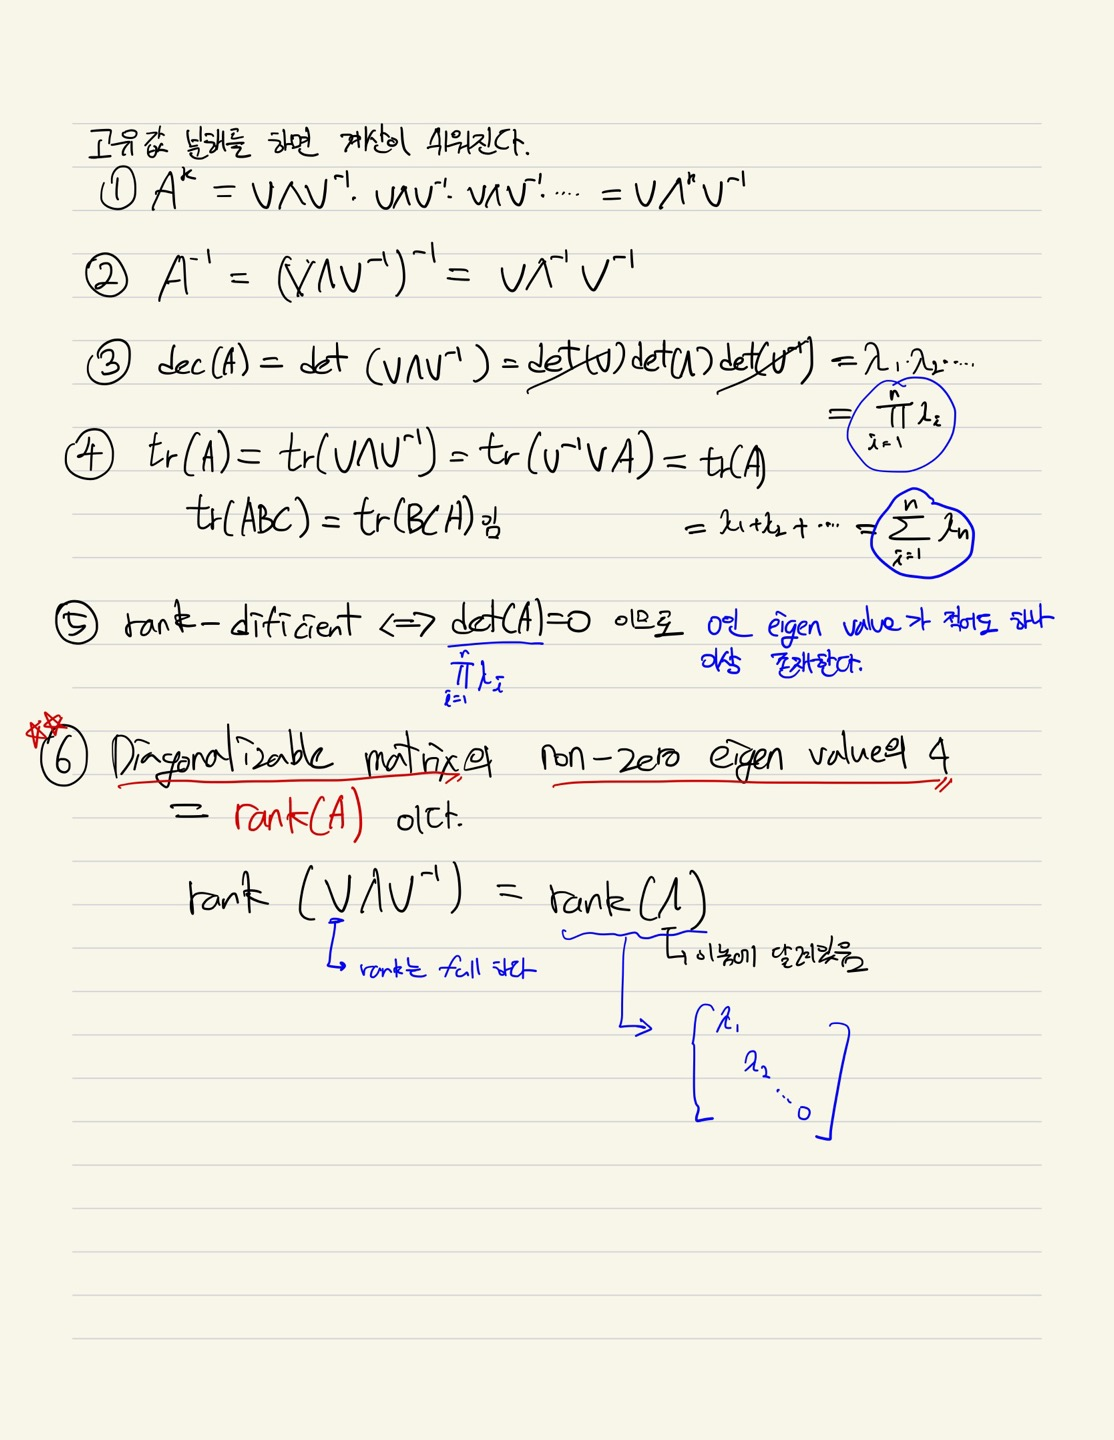 고유값 분해를 하면 계산이 쉬워진다.
① A^k = VΛV⁻¹. VΛV⁻¹. VΛV⁻¹. .... = VΛ^k V⁻¹
② A⁻¹ = (VΛV⁻¹)⁻¹ = VΛ⁻¹V⁻¹
③ dec(A) = det (VΛV⁻¹) = det(V) det(Λ) det(V⁻¹) = λ₁.λ₂....
= ∏_{i=1}^{n} λ_i
④ tr(A) = tr(VΛV⁻¹) = tr(V⁻¹VΛ) = tr(Λ)
tr(ABC) = tr(BCA)임 = λ₁+λ₂+ .... = ∑_{i=1}^{n} λ_n
⑤ rank-dificient <=> det(A)=0 이므로 0인 eigen value가 적어도 하나
∏_{i=1}^{n} λ_i 이상 존재한다.
☆☆
⑥ Diagonalizable matrix의 non-zero eigen value의 수
= rank(A) 이다.
rank (VΛV⁻¹) = rank(Λ)
↳ rank는 full 하다 ↳ 이놈에 달려있음
→ [λ₁
λ₂
⋱ 0]